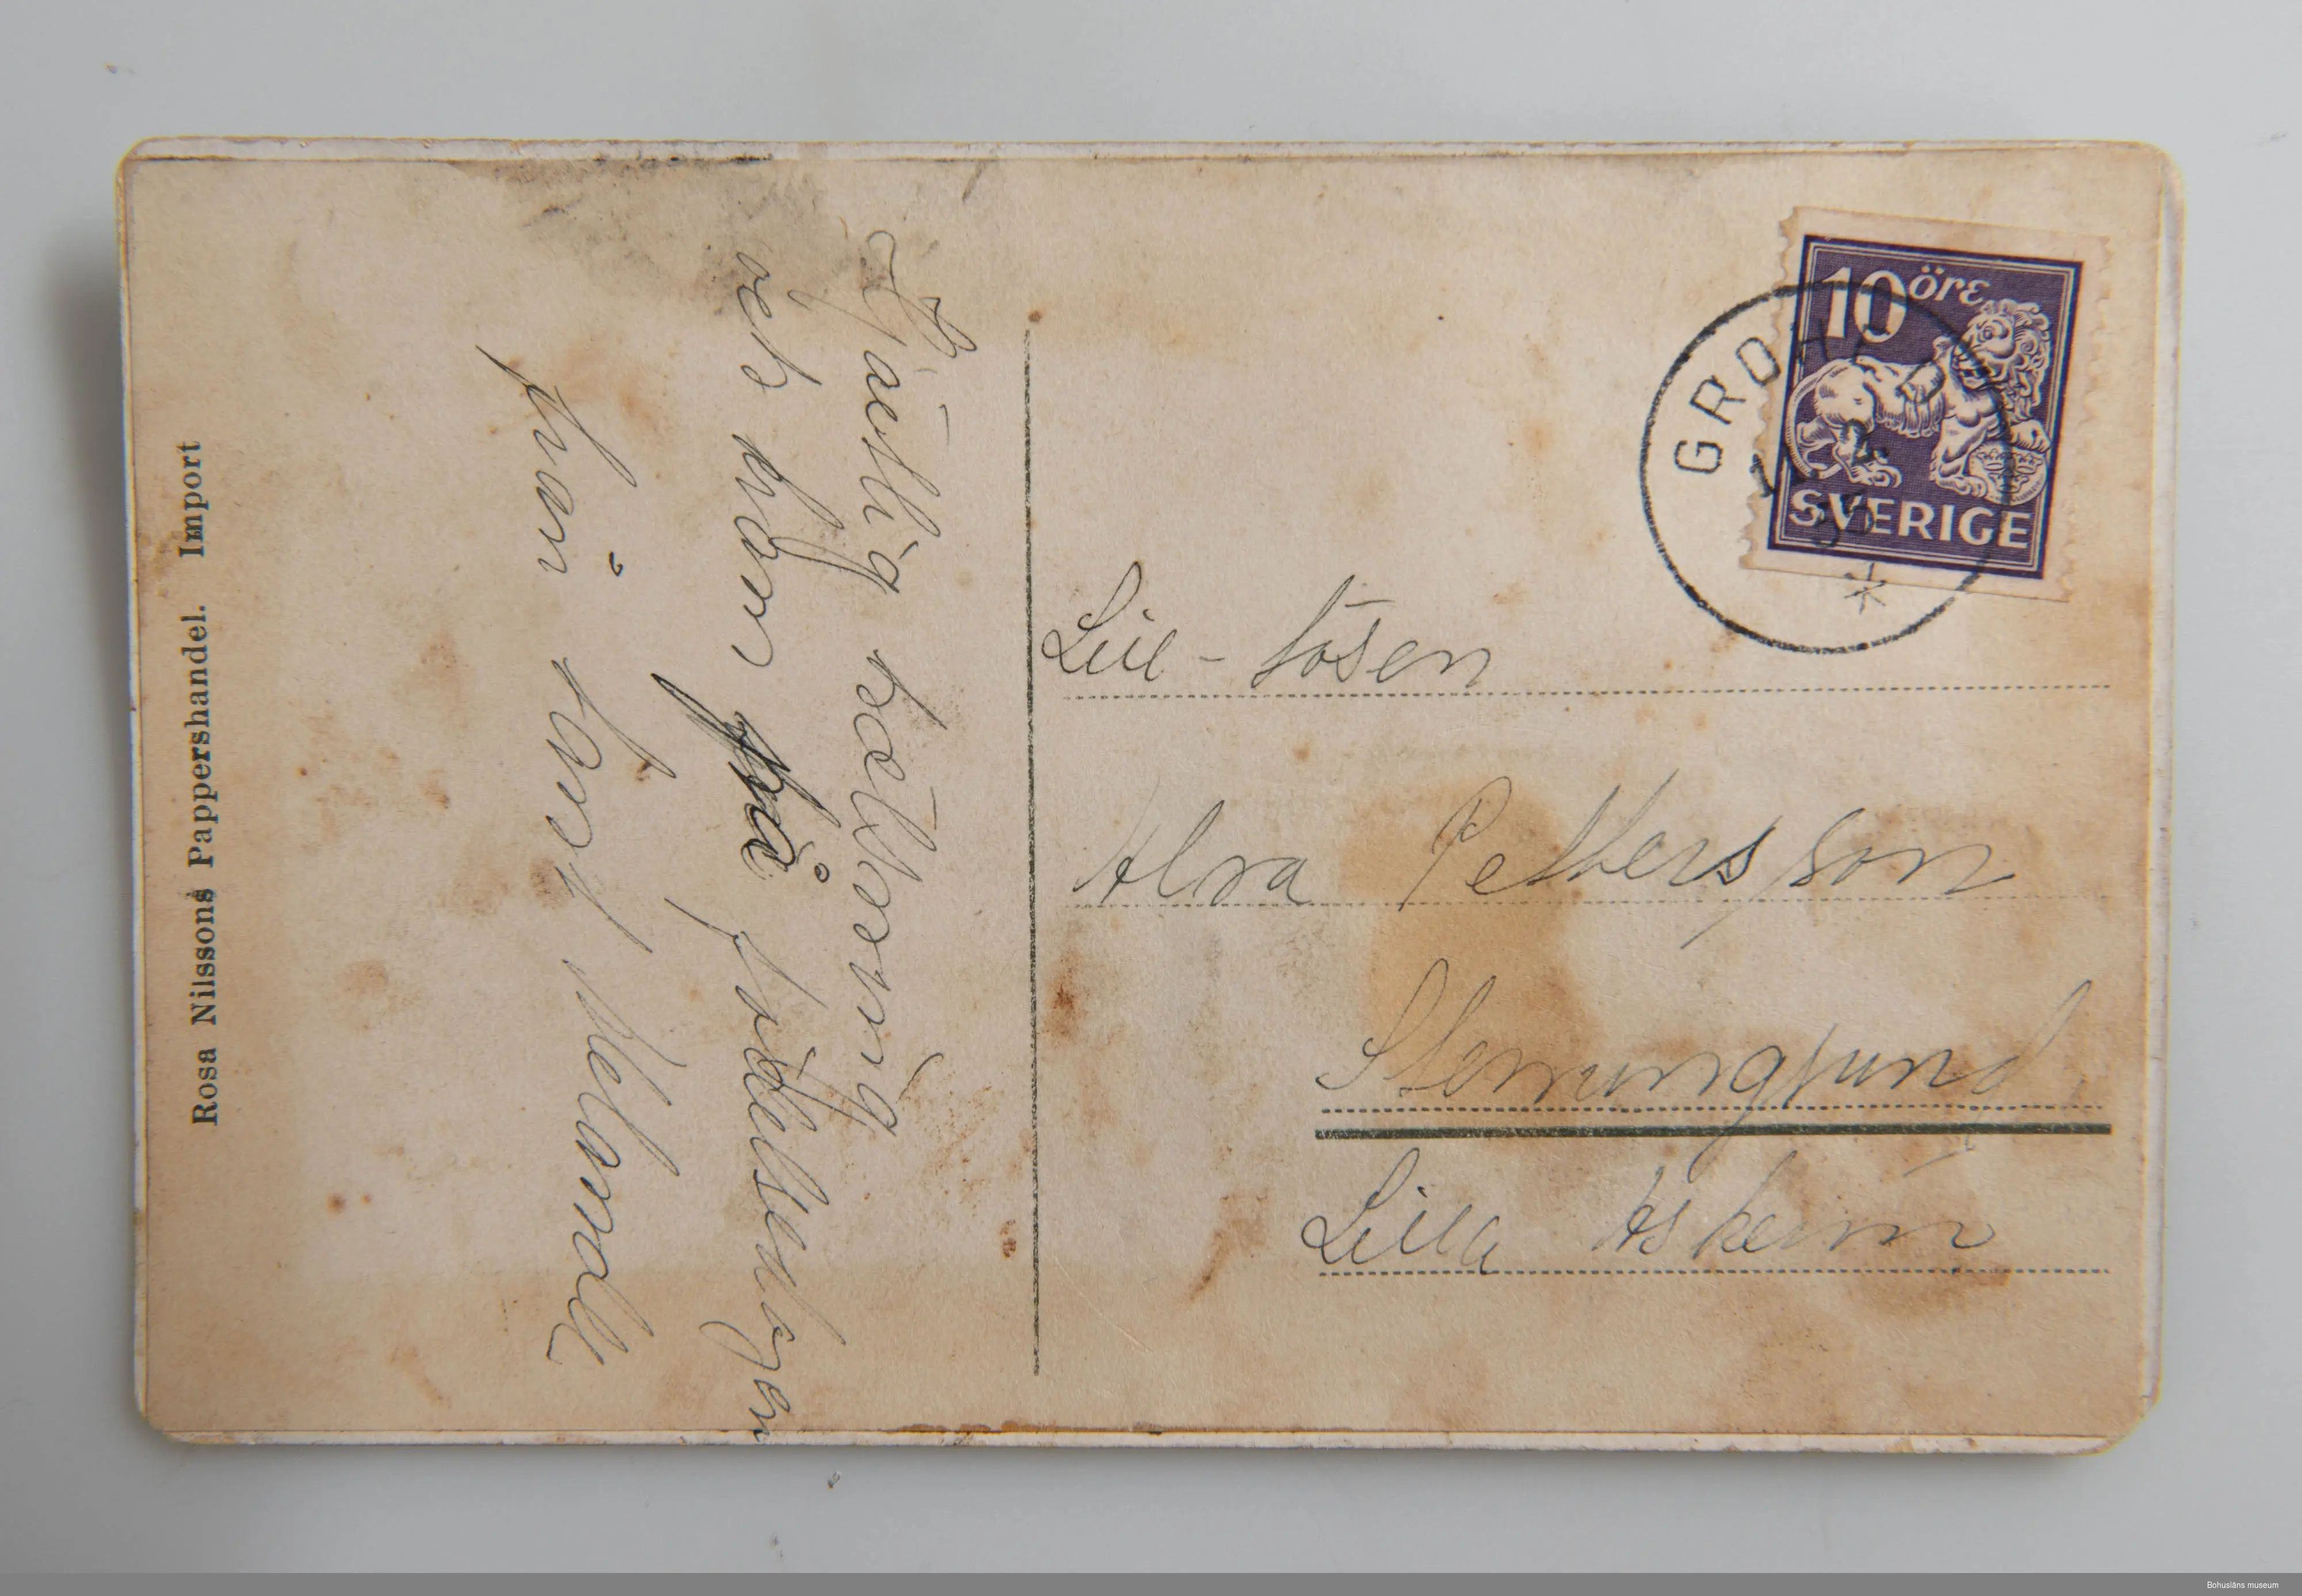 Rosa Nilssons Pappershandel. Import
Hjärtlig hälsning
och kram på födelsedagen
från tant
10 öre
SVERIGE
Lill-tösen
Alva Pettersson
Stenungsund
Lilla Askerön
Bohusläns museum